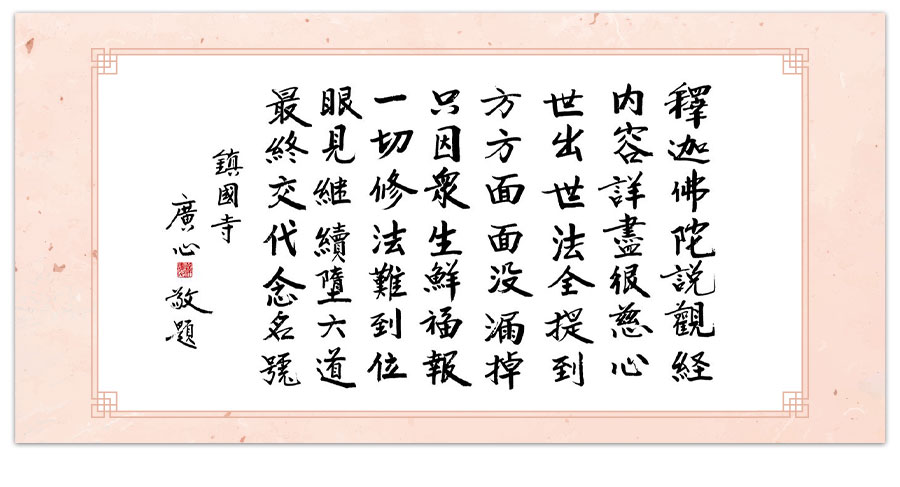 釋迦佛陀説觀経
内容詳盡很慈心
世出世法全提到
方方面面没漏掉
只因衆生鮮福報
一切修法難到位
眼見継續墮六道
最終交代念名號
鎮國寺
廣心敬題